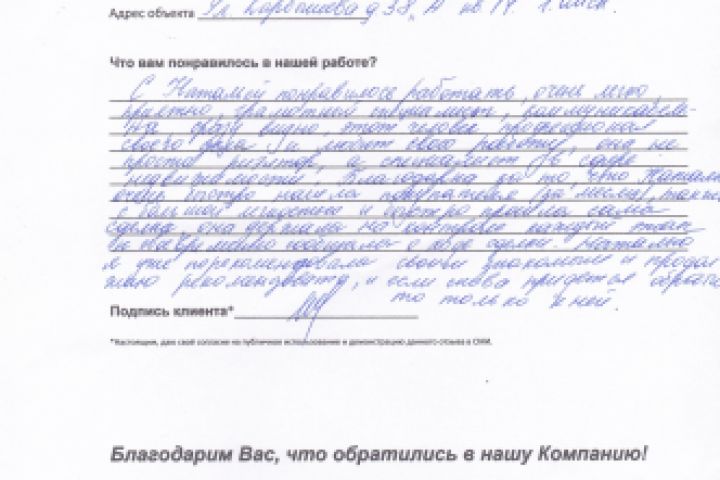 Адрес объекта Ул. Карбышева д 38,
Что вам понравилось в нашей работе?
С Натальей понравилось работать, очень легко,
приятно, грамотный специалист, коммуникабель-
ная, сразу видно, этот человек профессионал
своего дела и любит свою работу, она не
просто риэлтор, а специалист в сфере
недвижимости. Благодарна за то, что Наталья
очень быстро нашла покупателя
с большой и быстро прошла сама
сделка, она держала на каждый этап
и о ходе сделки. Наталью
я уже порекомендовала своим знакомым и продол
жаю рекомендовать, и если снова придется обращаться
то только к ней.
Подпись клиента*
*Настоящим, даю своё согласие на публичное использование и демонстрацию данного отзыва в СМИ.
Благодарим Вас, что обратились в нашу Компанию!